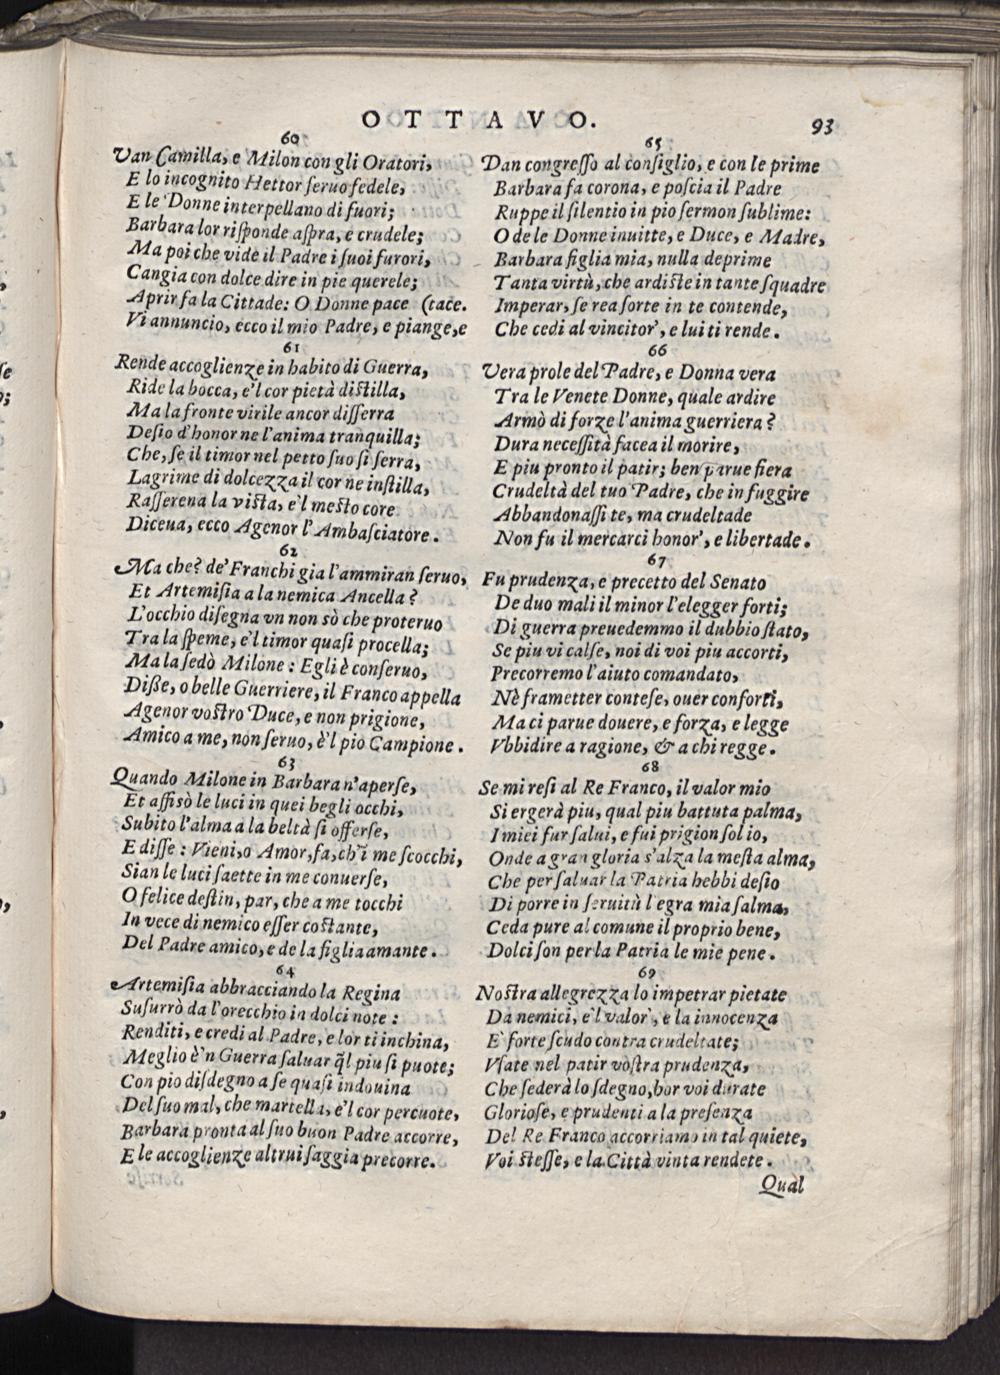 OTTAVO.
93
60
Van Camilla, e Milon con gli Oratori,
E lo incognito Hettor ſeruo fedele,
E le Donne interpellano di fuori;
Barbara lor riſponde aſpra, e crudele;
Ma poi che vide il Padre i ſuoi furori,
Cangia con dolce dire in pie querele;
Aprir fa la Cittade: O Donne pace (tace.
Vi annuncio, ecco il mio Padre, e piange, e
61
Rende accoglienze in habito di Guerra,
Ride la bocca, e'l cor pietà diſtilla,
Ma la fronte virile ancor diſſerra
Deſio d'honor ne l'anima tranquilla;
Che, ſe il timor nel petto ſuo ſi ſerra,
Lagrime di dolcezza il cor ne inſtilla,
Raſſerena la viſta, e'l meſto core
Diceua, ecco Agenor l'Ambaſciatore.
62
Ma che? de' Franchi gia l'ammiran ſeruo,
Et Artemiſia a la nemica Ancella?
L'occhio diſegna vn non sò che proteruo
Tra la ſpeme, e'l timor quaſi procella;
Ma la ſedò Milone: Egli è conſeruo,
Diße, o belle Guerriere, il Franco appella
Agenor voſtro Duce, e non prigione,
Amico a me, non ſeruo, è'l pio Campione.
63
Quando Milone in Barbara n'aperſe,
Et affisò le luci in quei begli occhi,
Subito l'alma a la beltà ſi offerſe,
E diſſe: Vieni, o Amor, fa, ch'i me ſcocchi,
Sian le luci ſaette in me conuerſe,
O felice deſtin, par, che a me tocchi
In vece di nemico eſſer coſtante,
Del Padre amico, e de la figlia amante.
64
Artemiſia abbracciando la Regina
Suſurrò da l'orecchio in dolci note:
Renditi, e credi al Padre, e lor ti inchina,
Meglio è 'n Guerra ſaluar q̃l piu ſi puote;
Con pio diſdegno a ſe quaſi indouina
Del ſuo mal, che martella, e'l cor percuote,
Barbara pronta al ſuo buon Padre accorre,
E le accoglienze altrui ſaggia precorre.
65
Dan congreſſo al conſiglio, e con le prime
Barbara fa corona, e poſcia il Padre
Ruppe il ſilentio in pio ſermon ſublime:
O de le Donne inuitte, e Duce, e Madre,
Barbara figlia mia, nulla deprime
Tanta virtù, che ardiſte in tante ſquadre
Imperar, ſe rea ſorte in te contende,
Che cedi al vincitor, e lui ti rende.
66
Vera prole del Padre, e Donna vera
Tra le Venete Donne, quale ardire
Armò di forze l'anima guerriera?
Dura neceſſità facea il morire,
E piu pronto il patir; ben parue fiera
Crudeltà del tuo Padre, che in fuggire
Abbandonaſſi te, ma crudeltade
Non fu il mercarci honor, e libertade.
67
Fu prudenza, e precetto del Senato
De duo mali il minor l'elegger forti;
Di guerra preuedemmo il dubbio ſtato,
Se piu vi calſe, noi di voi piu accorti,
Precorremo l'aiuto comandato,
Nè frametter conteſe, ouer conforti,
Ma ci parue douere, e forza, e legge
Vbbidire a ragione, & a chi regge.
68
Se mi reſi al Re Franco, il valor mio
Si ergerà piu, qual piu battuta palma,
I miei fur ſalui, e fui prigion ſol io,
Onde a gran gloria s'alza la meſta alma,
Che per ſaluar la Patria hebbi deſio
Di porre in ſeruitù l'egra mia ſalma,
Ceda pure al comune il proprio bene,
Dolci ſon per la Patria le mie pene.
69
Noſtra allegrezza lo impetrar pietate
Da nemici, e'l valor, e la innocenza
E' forte ſcudo contra crudeltate;
Vſate nel patir voſtra prudenza,
Che ſederà lo ſdegno, hor voi durate
Glorioſe, e prudenti a la preſenza
Del Re Franco accorriamo in tal quiete,
Voi ſteſſe, e la Città vinta rendete.
Qual